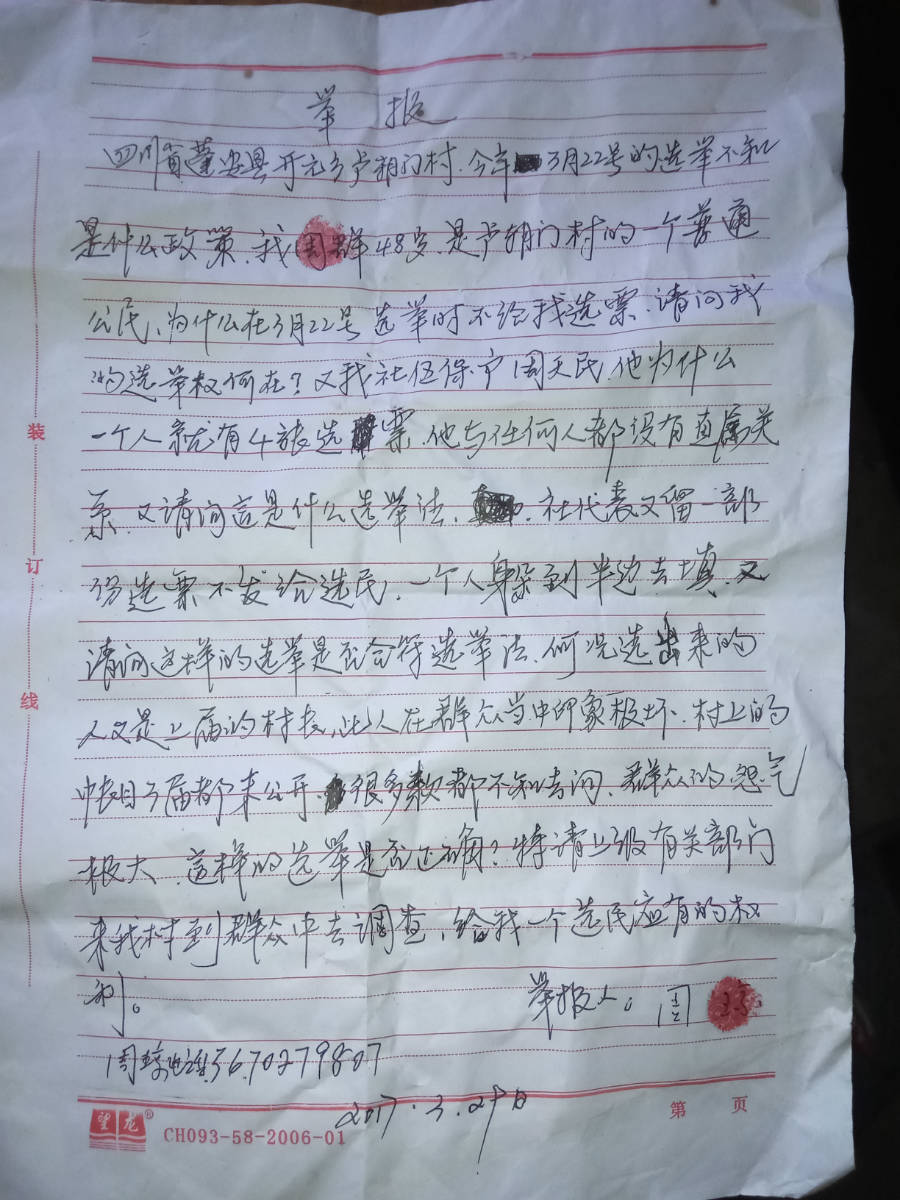 举 报
四川省蓬安县开元乡芦朝门村.今年3月22号的选举不知
是什么政策.我周群48岁.是芦朝门村的一个普通
公民、为什么在3月22号选举时不给我选票.请问我
的选举权何在?又我社伍保户周天民.他为什么
一个人就有4张选票.他与任何人都没有直属关
系.又请问这是什么选举法、社代表又留一部
份选票不发给选民.一个人躲到半边去填.又
请问这样的选举是否合符选举法.何况选出来的
人又是上届的村长,此人在群众当中印象极坏.村上的
帐目3届都未公开.很多数都不知去向.群众的怨气
极大.这样的选举是否正确?特请上级有关部门
来我村到群众中去调查,给我一个选民应有的权
利。
举报人:周
周群电话
2017.3.29日
装
订
线
望龙®
CH093-58-2006-01
第 页